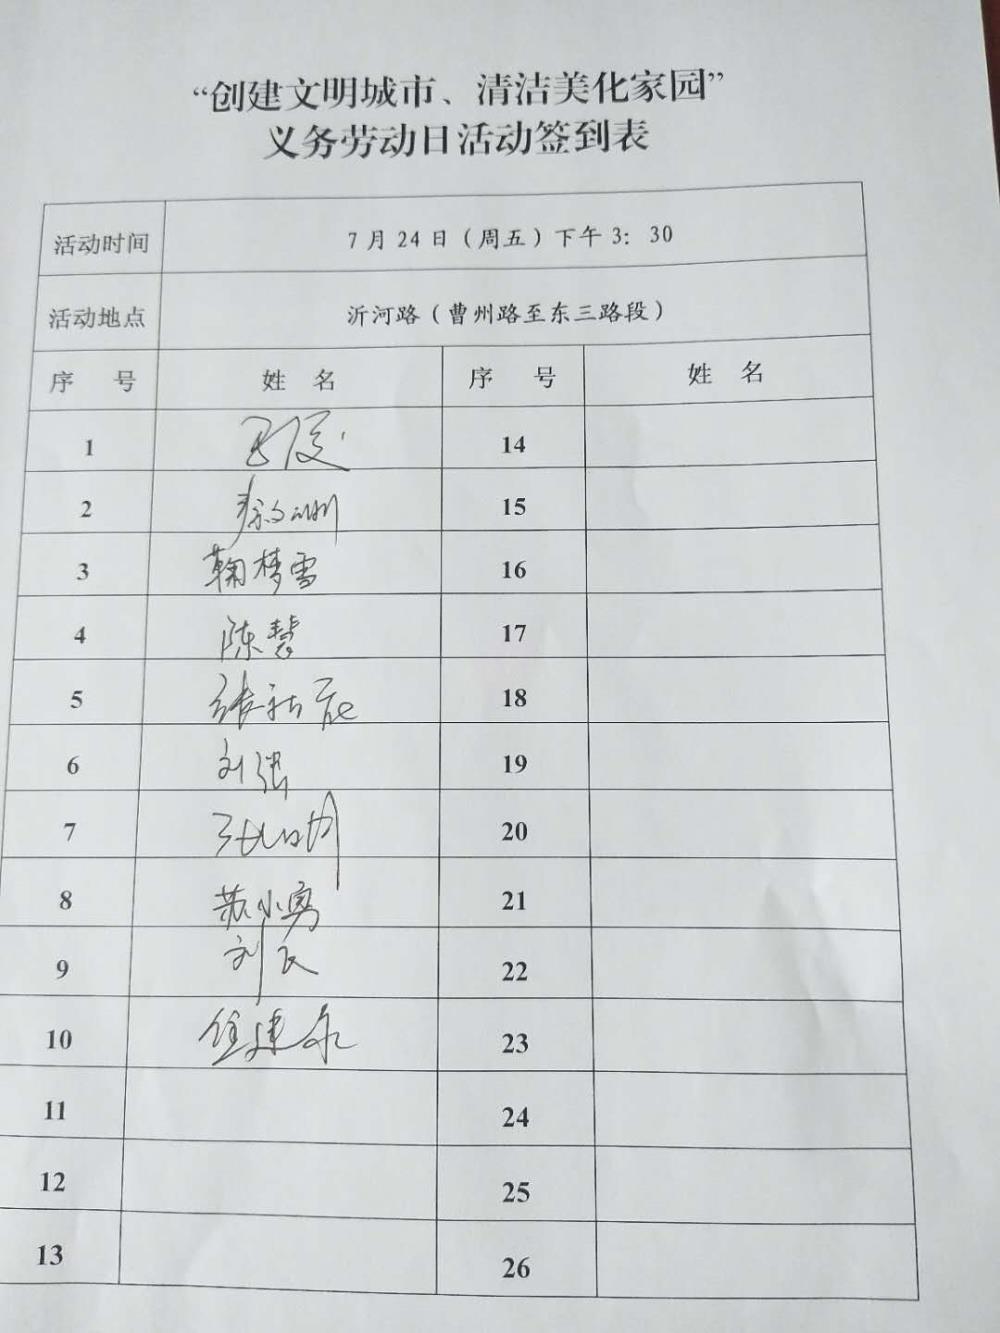 “创建文明城市、清洁美化家园”
义务劳动日活动签到表
活动时间 7月24日（周五）下午3：30
活动地点 沂河路（曹州路至东三路段）
序 号 姓 名 序 号 姓 名
1 14
2 15
3 鞠梦雪 16
4 陈慧 17
5 张 18
6 刘强 19
7 20
8 苏小勇 21
9 刘民 22
10 任建永 23
11 24
12 25
13 26